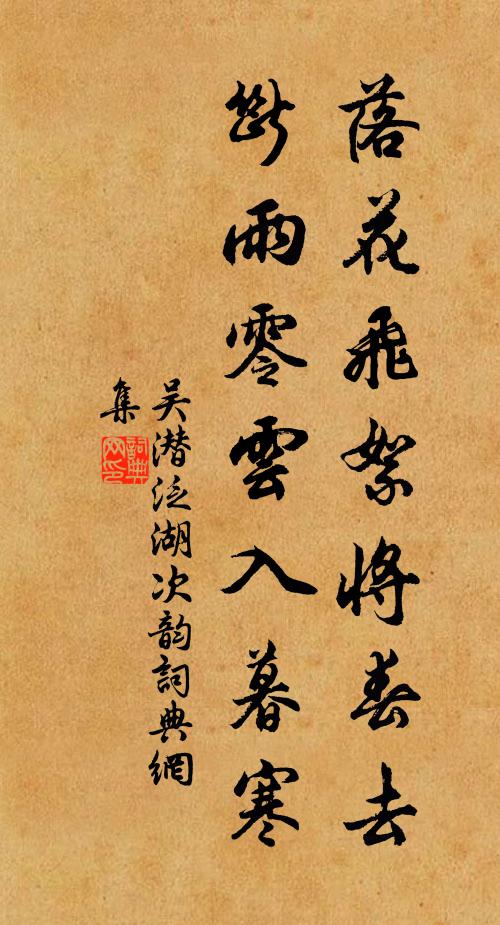 落花飛絮將春去
斷雨零雲入暮寒
吴潜泛湖次韵詞典網
集
詞典網印